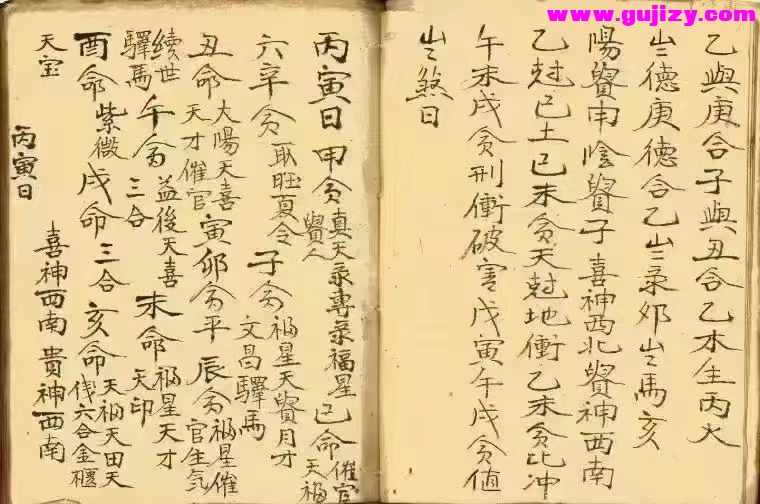 www.gujizy.com
乙與庚合子與丑合乙木生丙火
亗德庚德合乙亗彔夘亗馬亥
陽貴申陰貴子喜神西北貴神西南
乙尅己土己未貪天尅地衝乙未貪比冲
午未戌貪刑衝破害戊寅午戌貪值
亗煞日
丙寅日甲貪真天彔專彔福星貴人巳命催官天福
六辛貪取旺夏令子貪福星天貴月才文昌驛馬
丑命大陽天喜天才催官寅夘貪平辰貪福星催官生气
續世驛馬午貪益後天喜三合未命福星天才天印
酉命紫微戌命三合亥命天福天田天六合金匱
天宝
丙寅日
喜神西南貴神西南